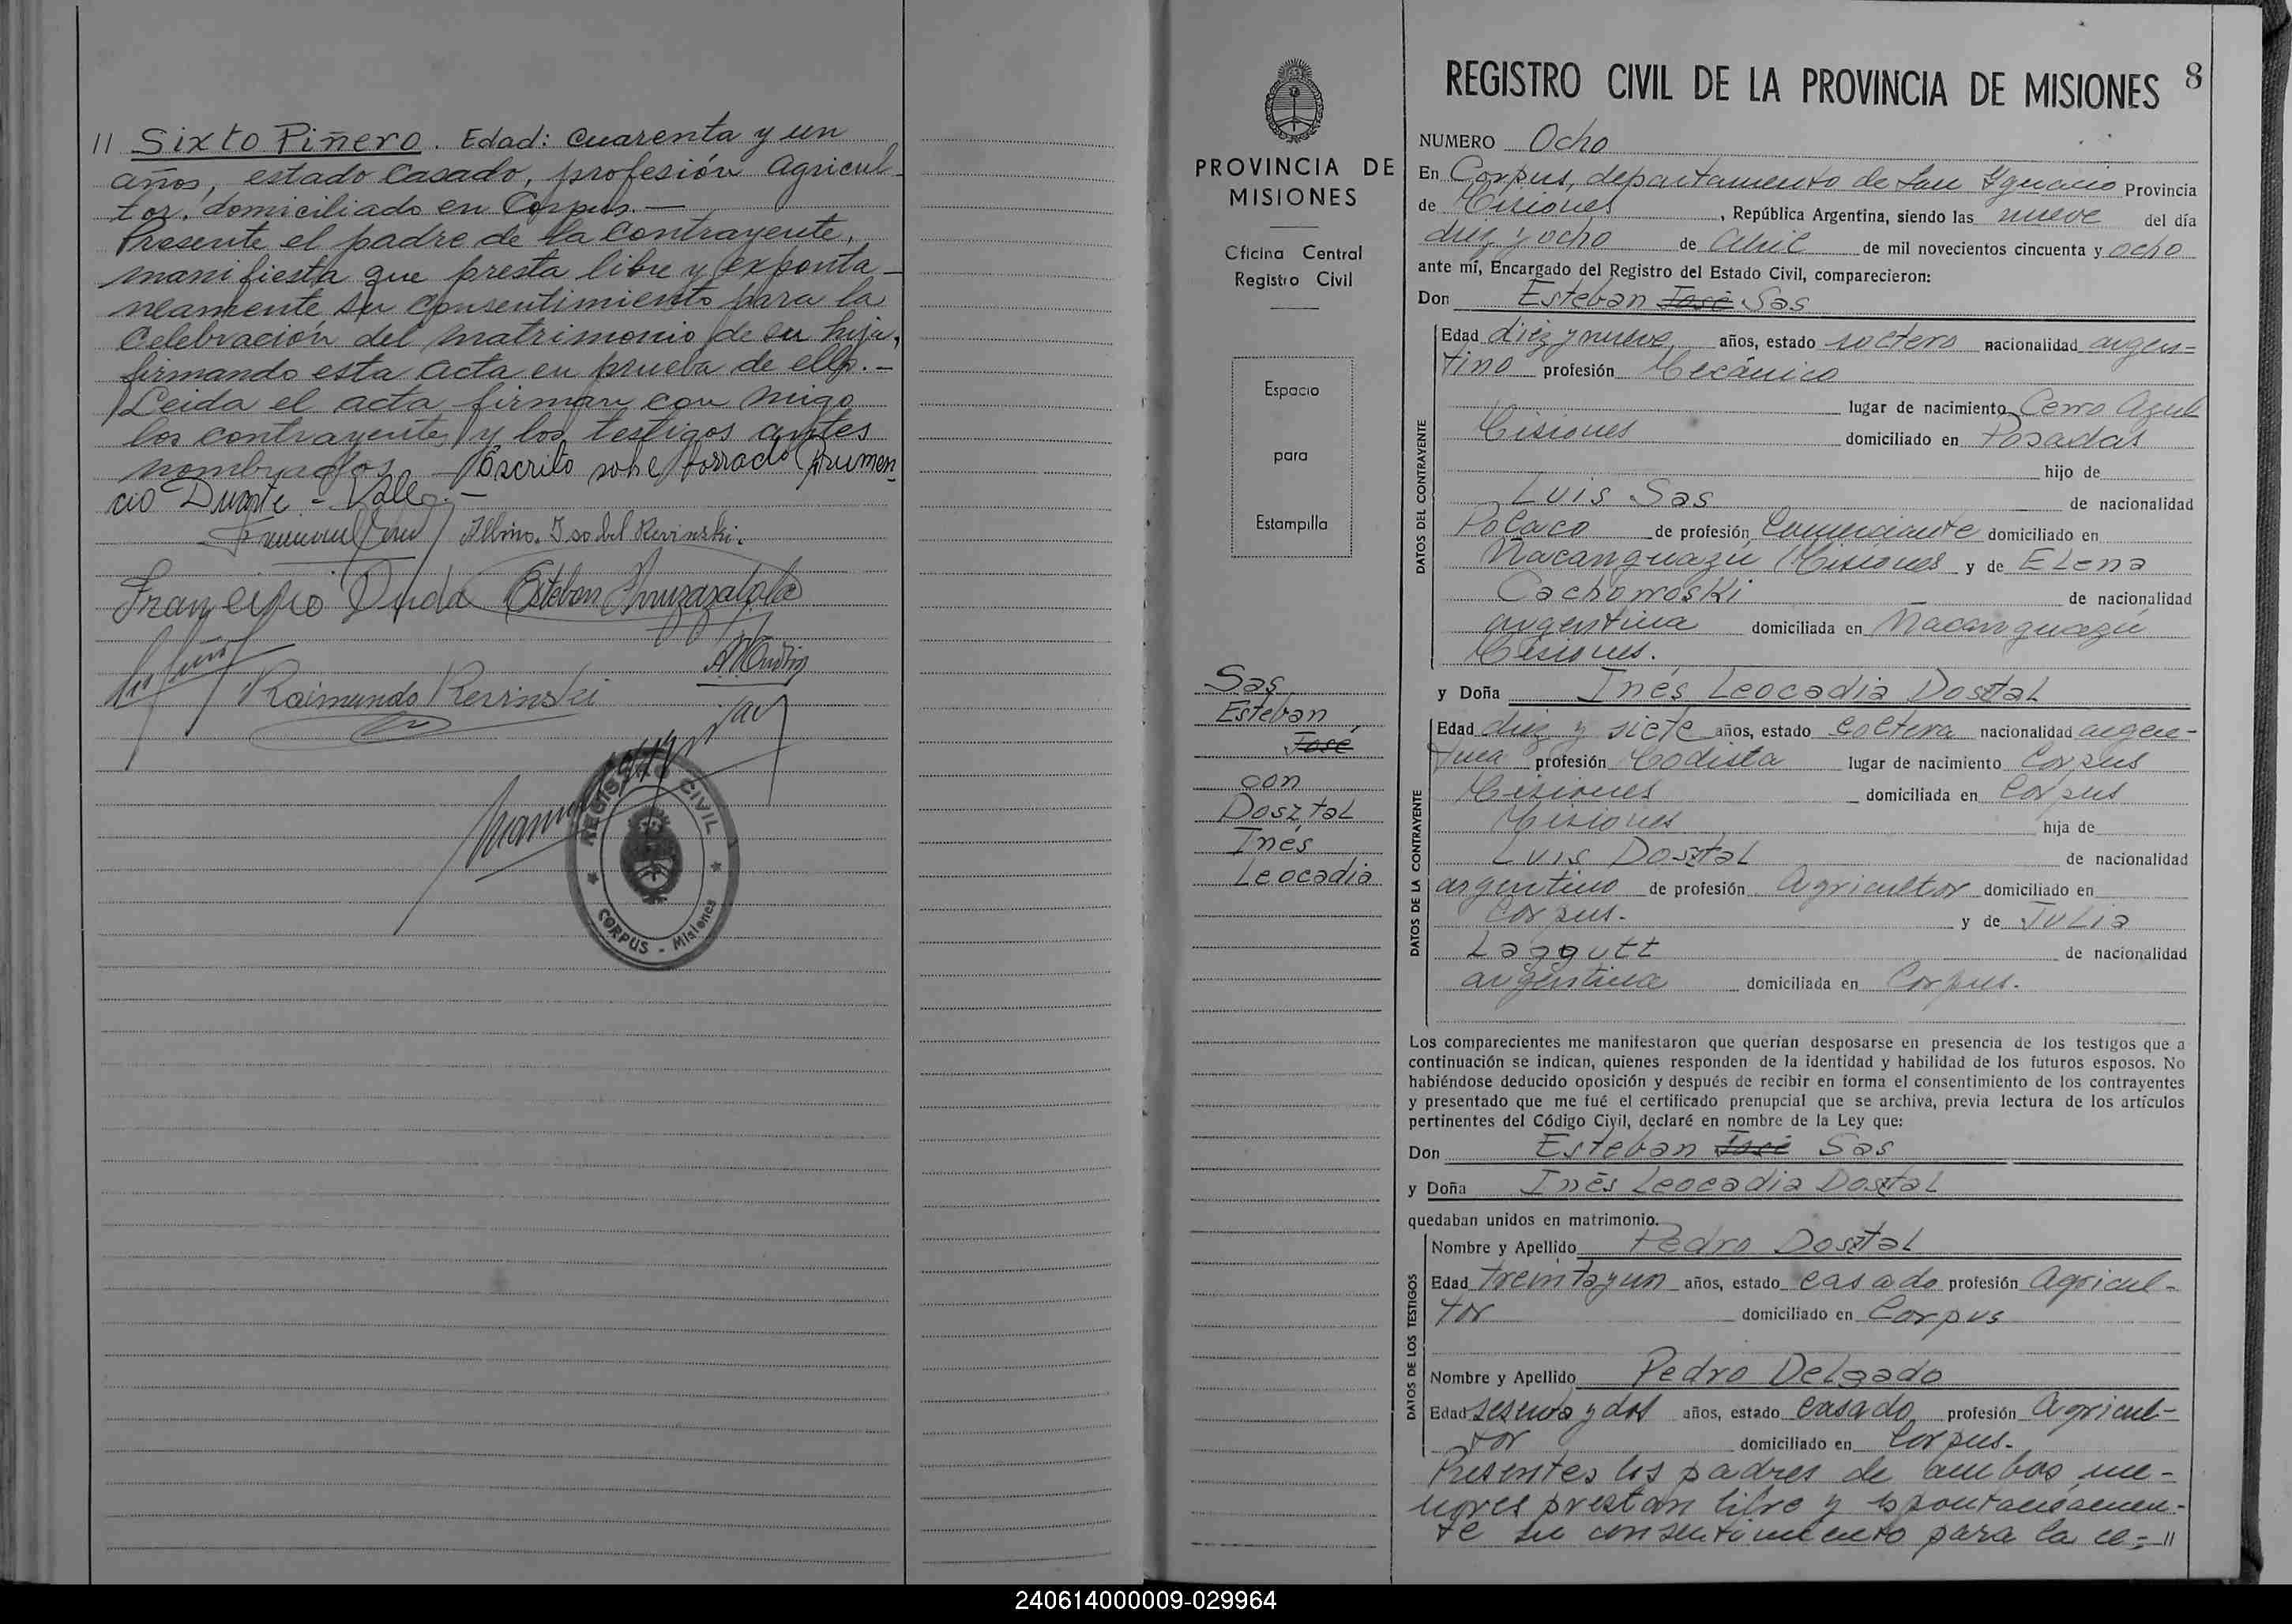 // Sixto Piñero. Edad: cuarenta y un
años, estado casado, profesión agricul-
tor, domiciliado en Corpus.—
Presente el padre de la contrayente,
manifiesta que presta libre y exponta-
neamente su consentimiento para la
celebración del matrimonio de su hija,
firmando esta acta en prueba de ello.-
Leida el acta firman con migo
los contrayentes y los testigos antes
nombrados. Escrito sobre borrado Frumen-
cio Duarte - Vale.-
Albino. Isabel Revinski.
Duda Esteban
Raimundo Revinski
REGISTRO CIVIL
CORPUS - Misiones
PROVINCIA DE
MISIONES
Oficina Central
Registro Civil
Espacio
para
Estampilla
Sas
Esteban
José
con
Dosztal
Inés
Leocadia
REGISTRO CIVIL DE LA PROVINCIA DE MISIONES 8
NUMERO Ocho
En Corpus, departamento de San Ygnacio Provincia
de Misiones, República Argentina, siendo las nueve del día
diez y ocho de Abril de mil novecientos cincuenta y ocho
ante mí, Encargado del Registro del Estado Civil, comparecieron:
Don Esteban José Sas
DATOS DEL CONTRAYENTE
Edad diez y nueve años, estado soltero nacionalidad argen=
tino profesión Mecánico
lugar de nacimiento Cerro Azul
Misiones domiciliado en Posadas
hijo de
Luis Sas de nacionalidad
Polaco de profesión Comerciante domiciliado en
Ñacanguazú Misiones y de Elena
Cachowoski de nacionalidad
argentina domiciliada en Ñacanguazú
Misiones.
y Doña Inés Leocadia Dosztal
DATOS DE LA CONTRAYENTE
Edad diez y siete años, estado soltera nacionalidad argen-
tina profesión Modista lugar de nacimiento Corpus
Misiones domiciliada en Corpus
Misiones hija de
Luis Dosztal de nacionalidad
argentino de profesión Agricultor domiciliado en
Corpus. y de Julia
Laggutt de nacionalidad
argentina domiciliada en Corpus.
Los comparecientes me manifestaron que querían desposarse en presencia de los testigos que a
continuación se indican, quienes responden de la identidad y habilidad de los futuros esposos. No
habiéndose deducido oposición y después de recibir en forma el consentimiento de los contrayentes
y presentado que me fué el certificado prenupcial que se archiva, previa lectura de los artículos
pertinentes del Código Civil, declaré en nombre de la Ley que:
Don Esteban José Sas
y Doña Inés Leocadia Dosztal
quedaban unidos en matrimonio.
DATOS DE LOS TESTIGOS
Nombre y Apellido Pedro Dosztal
Edad treintayun años, estado casado profesión Agricul-
tor domiciliado en Corpus
Nombre y Apellido Pedro Delgado
Edad sesenta y dos años, estado casado profesión Agricul-
tor domiciliado en Corpus.
Presentes los padres de ambos me-
nores prestan libre y espontaneamen-
te su consentimiento para la ce-//
240614000009-029964